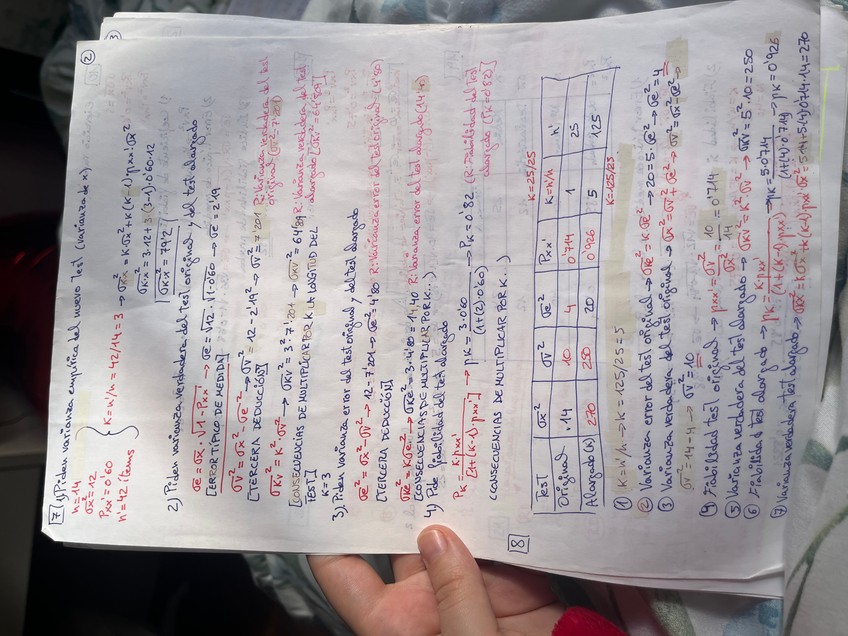 ②
7 1) Piden varianza empírica del nuevo test (varianza de x)
n=14
σx²=12
Pxx'=0'60
n'=42 ítems
K=n'/n=42/14=3 → σKx²=K·σx²+K(K-1)ρxx'σx²
σK·x=3·12+3·(3-1)·0'60·12
σKx²=79'2
2) Piden varianza verdadera del test original y del test alargado
σe=σx·√1-Pxx' → σe=√12·√1-0'60 → σe=2'19
[ERROR TÍPICO DE MEDIDA]
σv²=σx²-σe² → σv²=12-2'19² → σv²=7'201 R: Varianza verdadera del test original (σv²=7'201)
[TERCERA DEDUCCIÓN]
σKv²=K²·σv² → σKv²=3²·7'201 → σKv²=64'89 R: Varianza verdadera del test alargado [σv²=64'89]
[CONSECUENCIAS DE MULTIPLICAR POR K LA LONGITUD DEL TEST]
K=3
3) Piden varianza error del test original y del test alargado
σe²=σx²-σv² → 12-7'201 → σe²=4'80 R: Varianza error del test original (4'80)
[TERCERA DEDUCCIÓN]
σKe²=Kσe² → σKe²=3·4'80=14,40 R: Varianza error del test alargado (14,40)
[CONSECUENCIAS DE MULTIPLICAR POR K...)
4) Pide fiabilidad del test alargado
PK=K·Pxx'/[1+(K-1)·Pxx'] → PK=3·0'60/(1+(2)·0'60) → PK=0'82 (R=fiabilidad del test alargado (PK=0'82)
(CONSECUENCIAS DE MULTIPLICAR POR K...)
8
K=25/25
Test σx² σv² σe² Pxx' K=n'/n n'
Original 14 10 4 0'714 1 25
Alargado(K) 270 250 20 0'926 5 125
K=125/25
① K=n'/n → K=125/25=5
② Varianza error del test original → σKe²=Kσe² → 20=5·σe² → σe²=4
③ Varianza verdadera del test original → σx²=σv²+σe² → σv²=σx²-σe² →
σv²=14-4 → σv²=10
④ Fiabilidad test original → ρxx'=σv²/σx²=10/14=0'714
⑤ Varianza verdadera del test alargado → σKv²=K²σv² → σKv²=5²·10=250
⑥ Fiabilidad test alargado → PK=K·Pxx'/(1+(K-1)Pxx') → PK=5·0'714/(1+(4)·0'714) → PK=0'926
⑦ Varianza verdadera test alargado → σKx²=Kσx²+K(K-1)Pxx'σx²=5·14+5·(4)·0'714·14=270